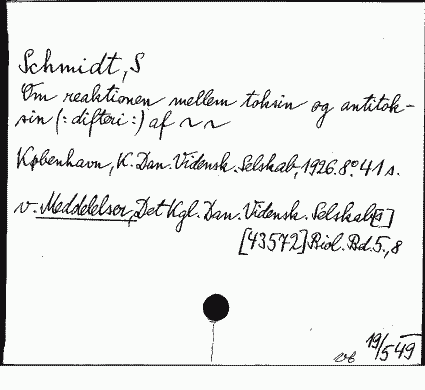 Schmidt, S
Om reaktionen mellem toksin og antitok-
sin (: difteri :) af ~ ~
København, K. Dan. Vidensk. Selskab, 1926. 8º. 41 s.
v. Meddelelser, Det Kgl. Dan. Vidensk. Selskab[s]
[43572] Biol. Bd. 5., 8
19/5 49